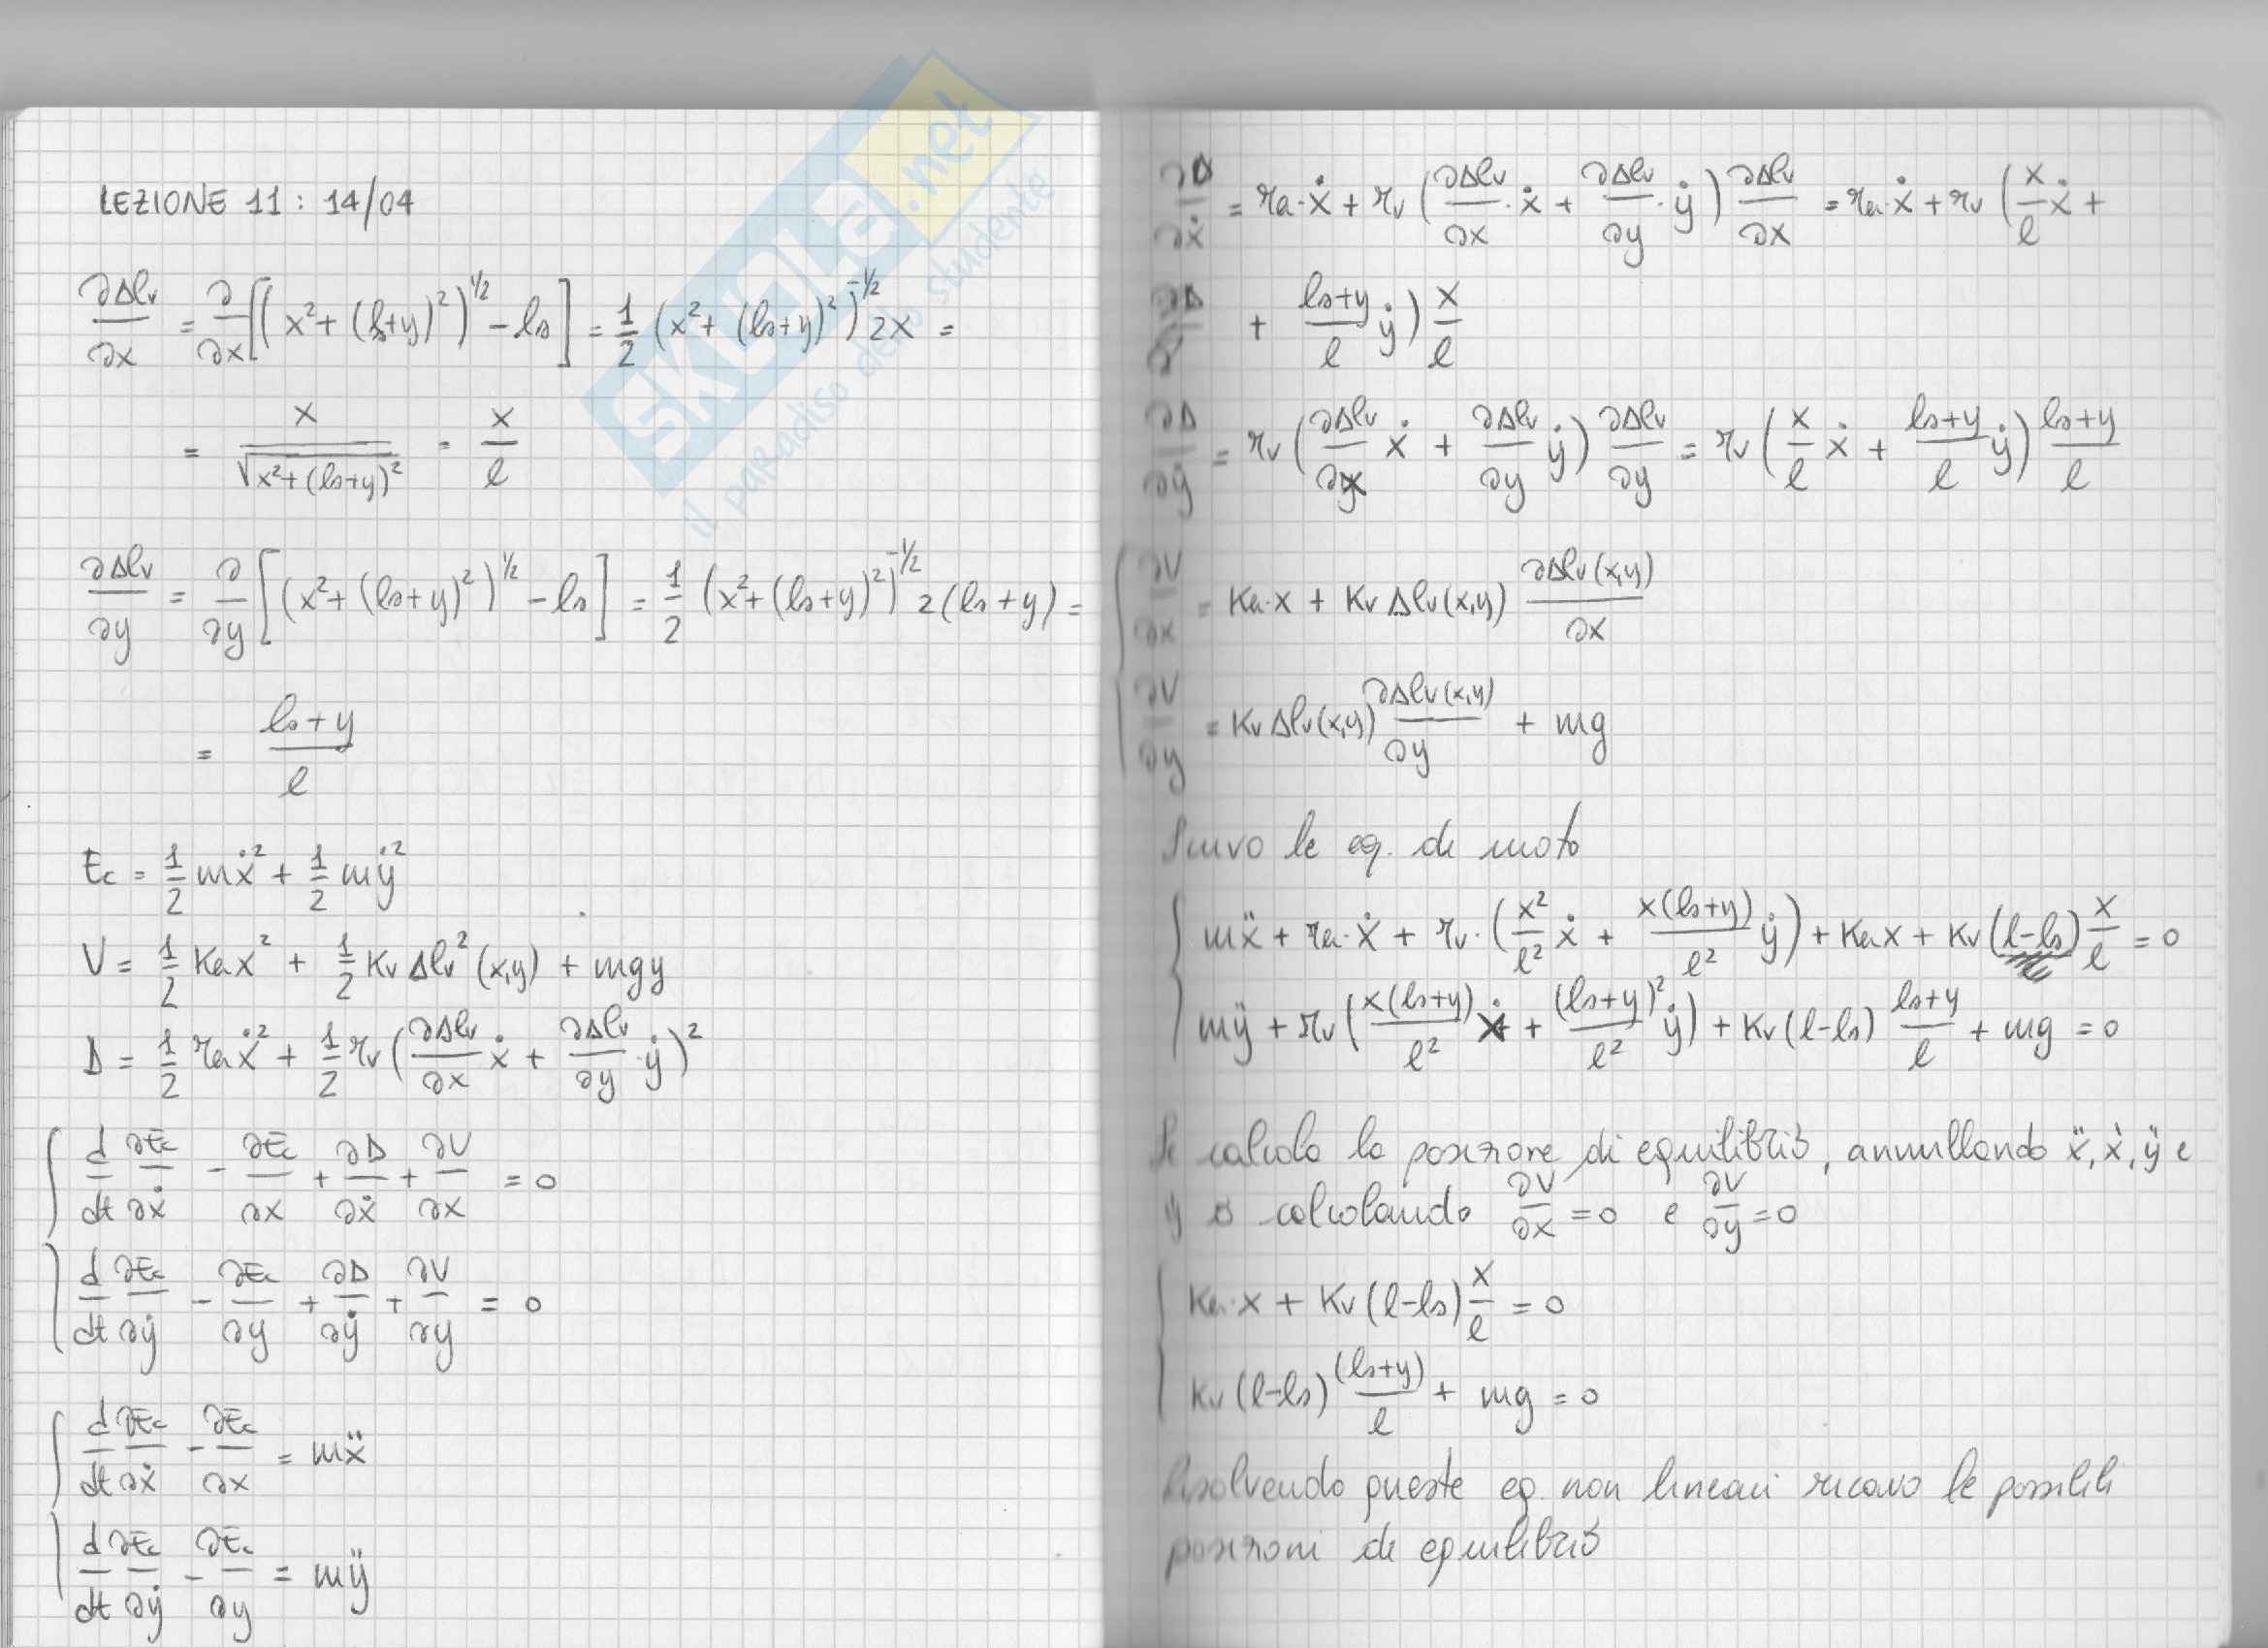 LEZIONE 11 : 14/04
∂Δlv/∂x = ∂/∂x [(x² + (ls+y)²)^1/2 - ls] = 1/2 (x² + (ls+y)²)^-1/2 2x =
= x/√(x²+(ls+y)²) = x/l
∂Δlv/∂y = ∂/∂y [(x² + (ls+y)²)^1/2 - ls] = 1/2 (x² + (ls+y)²)^-1/2 2(ls+y) =
= (ls+y)/l
Ec = 1/2 mẋ² + 1/2 mẏ²
V = 1/2 Ka x² + 1/2 Kv Δlv²(x,y) + mgy
D = 1/2 ra ẋ² + 1/2 rv (∂Δlv/∂x ẋ + ∂Δlv/∂y · ẏ)²
{ d/dt ∂Ec/∂ẋ - ∂Ec/∂x + ∂D/∂ẋ + ∂V/∂x = 0
d/dt ∂Ec/∂ẏ - ∂Ec/∂y + ∂D/∂ẏ + ∂V/∂y = 0
{ d/dt ∂Ec/∂ẋ - ∂Ec/∂x = mẍ
d/dt ∂Ec/∂ẏ - ∂Ec/∂y = mÿ
∂D/∂ẋ = ra·ẋ + rv (∂Δlv/∂x · ẋ + ∂Δlv/∂y · ẏ) ∂Δlv/∂x = ra·ẋ + rv (x/l ẋ +
+ (ls+y)/l ẏ) x/l
∂D/∂ẏ = rv (∂Δlv/∂x ẋ + ∂Δlv/∂y ẏ) ∂Δlv/∂y = rv (x/l ẋ + (ls+y)/l ẏ) (ls+y)/l
{ ∂V/∂x = Ka·x + Kv Δlv(x,y) ∂Δlv(x,y)/∂x
∂V/∂y = Kv Δlv(x,y) ∂Δlv(x,y)/∂y + mg
Scrivo le eq. di moto
{ mẍ + ra·ẋ + rv·(x²/l² ẋ + x(ls+y)/l² ẏ) + Ka x + Kv (l-ls) x/l = 0
mÿ + rv (x(ls+y)/l² ẋ + (ls+y)²/l² ẏ) + Kv (l-ls) (ls+y)/l + mg = 0
Si calcola la posizione di equilibrio, annullando ẍ, ẋ, ÿ e
ẏ o calcolando ∂V/∂x = 0 e ∂V/∂y = 0
{ Ka·x + Kv (l-ls) x/l = 0
Kv (l-ls) (ls+y)/l + mg = 0
Risolvendo queste eq. non lineari ricavo le possibili
posizioni di equilibrio
SKUOLA.net
il paradiso dello studente